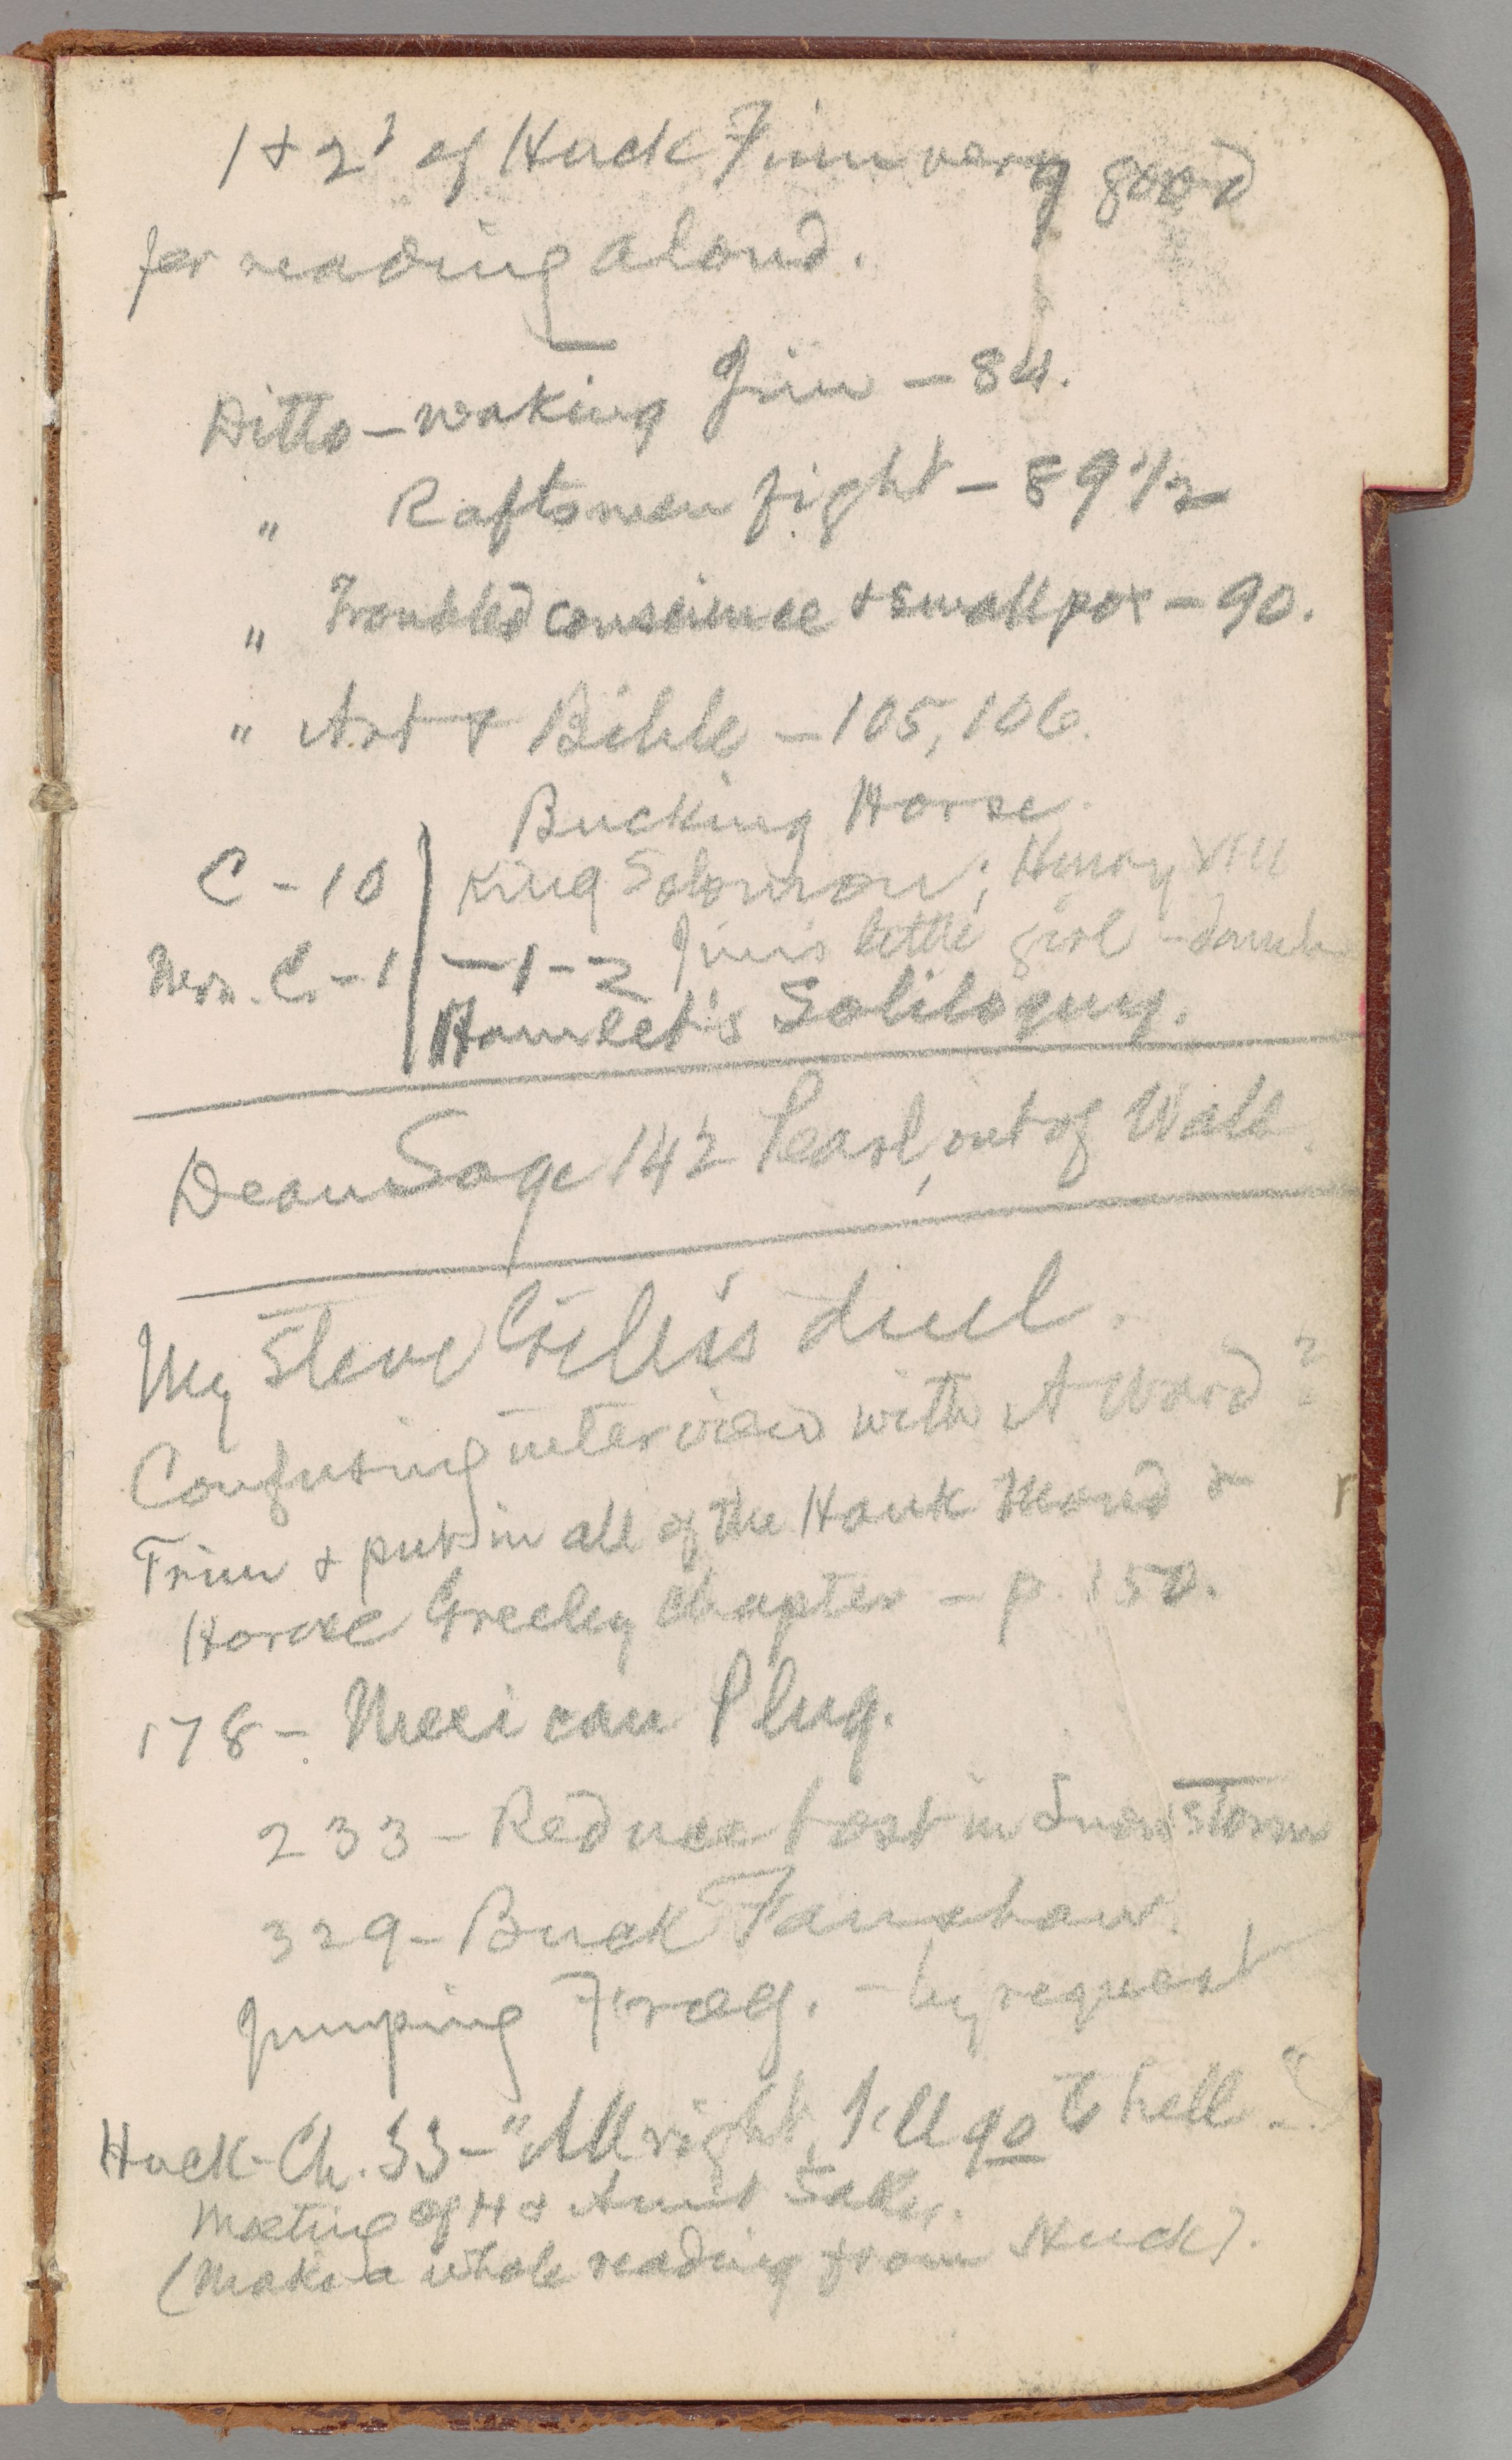 1 & 2d of Huck Finn very good
for reading aloud.
Ditto – waking Jim – 84.
" Raftsmen fight – 89 1/2
" Troubled conscience & small pox – 90.
" Art & Bible – 105, 106.
Bucking Horse.
C – 10 King Solomon; Henry VIII
C – 1 – 1 – 2 Jim's little girl – dumb
Hamlet's Soliloquy.
Dean Sage 142 Pearl, out of Wall
My Steve Gillis duel.
Confusing interview with A Ward?
Trim & put in all of the Hank Monk &
Horace Greeley chapter – p. 150.
178 – Mexican Plug.
233 – Reduce Lost in Snowstorm
329 – Buck Fanshaw.
Jumping Frog. – by request
Huck – Ch. 33 – "All right, I'll go to hell –"
Meeting of H & Aunt Sally.
(Make a whole reading from Huck).